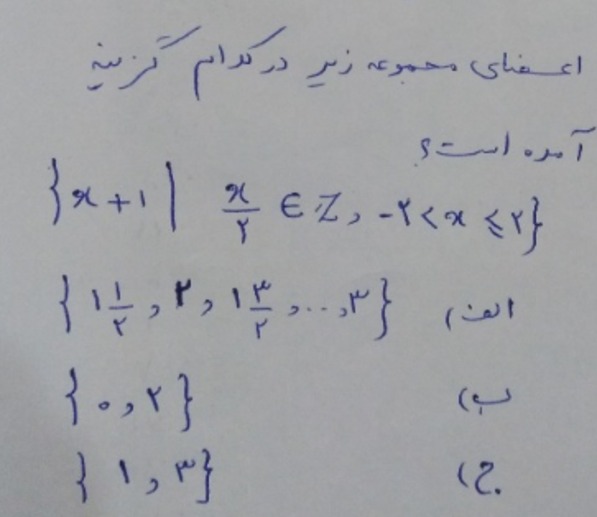 اعضای مجموعه زیر در کدام گزینه
آمده است؟
{x+1 | x/۲ ∈ Z, -۲<x≤۲}
الف) {۱ ۱/۲, ۲, ۱ ۳/۲, ..., ۳}
ب) {۰, ۲}
ج) {۱, ۳}